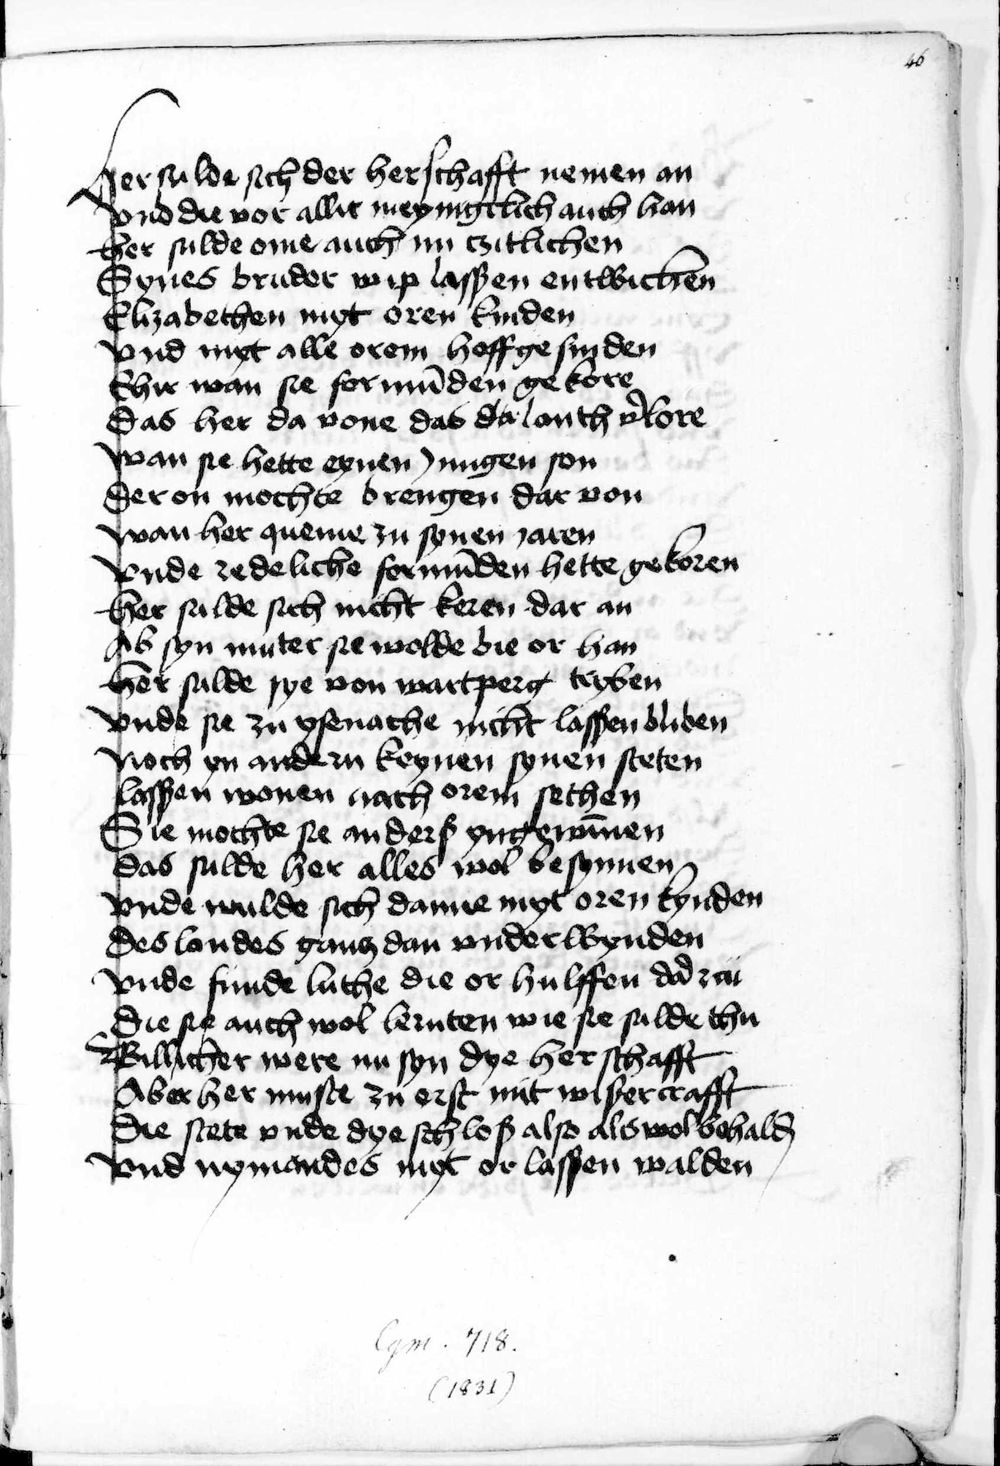 46
Her sulde sich der herschafft nemen an
Vnd die vor allir meyngklich auch han
her sulde ome auch nu czitlichen
Synes bruder wip lasszen entwichen
Elizabethen myt oren kinden
vnd myt alle orem hoffgesinden
Ehir wan sie formūden gekore
das her da vone das lanth v̓lore
wan sie hette eynen jungen son
der on mochte brengen dar von
wan her queme zu synen jaren
vnde redeliche formūden hette gekoren
her sulde sich nicht keren dar an
Ab syn muter sie wolde bie or han
her sulde sye von wartperg tryben
vnde sie zu ysenache nicht lasszen bliben
noch yn andern keynen synen steten
lasszen wonen nach orem sethen
Sie mochte sie anderß yngewīnen
das sulde her alles wol besynnen
vnde wulde sich danne myt oren kynden
des landes gantz dan vnderwynden
vnde funde luthe die or hulffen da zcu
die sie auch wol lernten wie sie sulde thu
Billicher were nu syn dye herschafft
Aber her muste zu erst mit wiszer crafft
die stete vnde dye schloß also als wol behaldn
vnd nymandes myt or lasszen walden
Cgm. 718.
(1831)